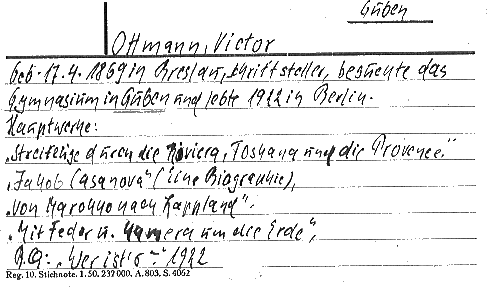 Guben
Ottmann, Victor
Geb. 17.4.1869 in Breslau, Schriftsteller, besuchte das
Gymnasium in Guben und lebte 1922 in Berlin.
Hauptwerke:
„Streifzüge durch die Riviera, Toskana und die Provence."
„Jakob Casanova" (Eine Biographie),
„Von Marokko nach Lappland".
„Mit Feder u. Kamera um die Erde",
„Wer ist's" 1922
Reg. 10. Stichnote. 1. 50. 237000. A. 803. S. 4062